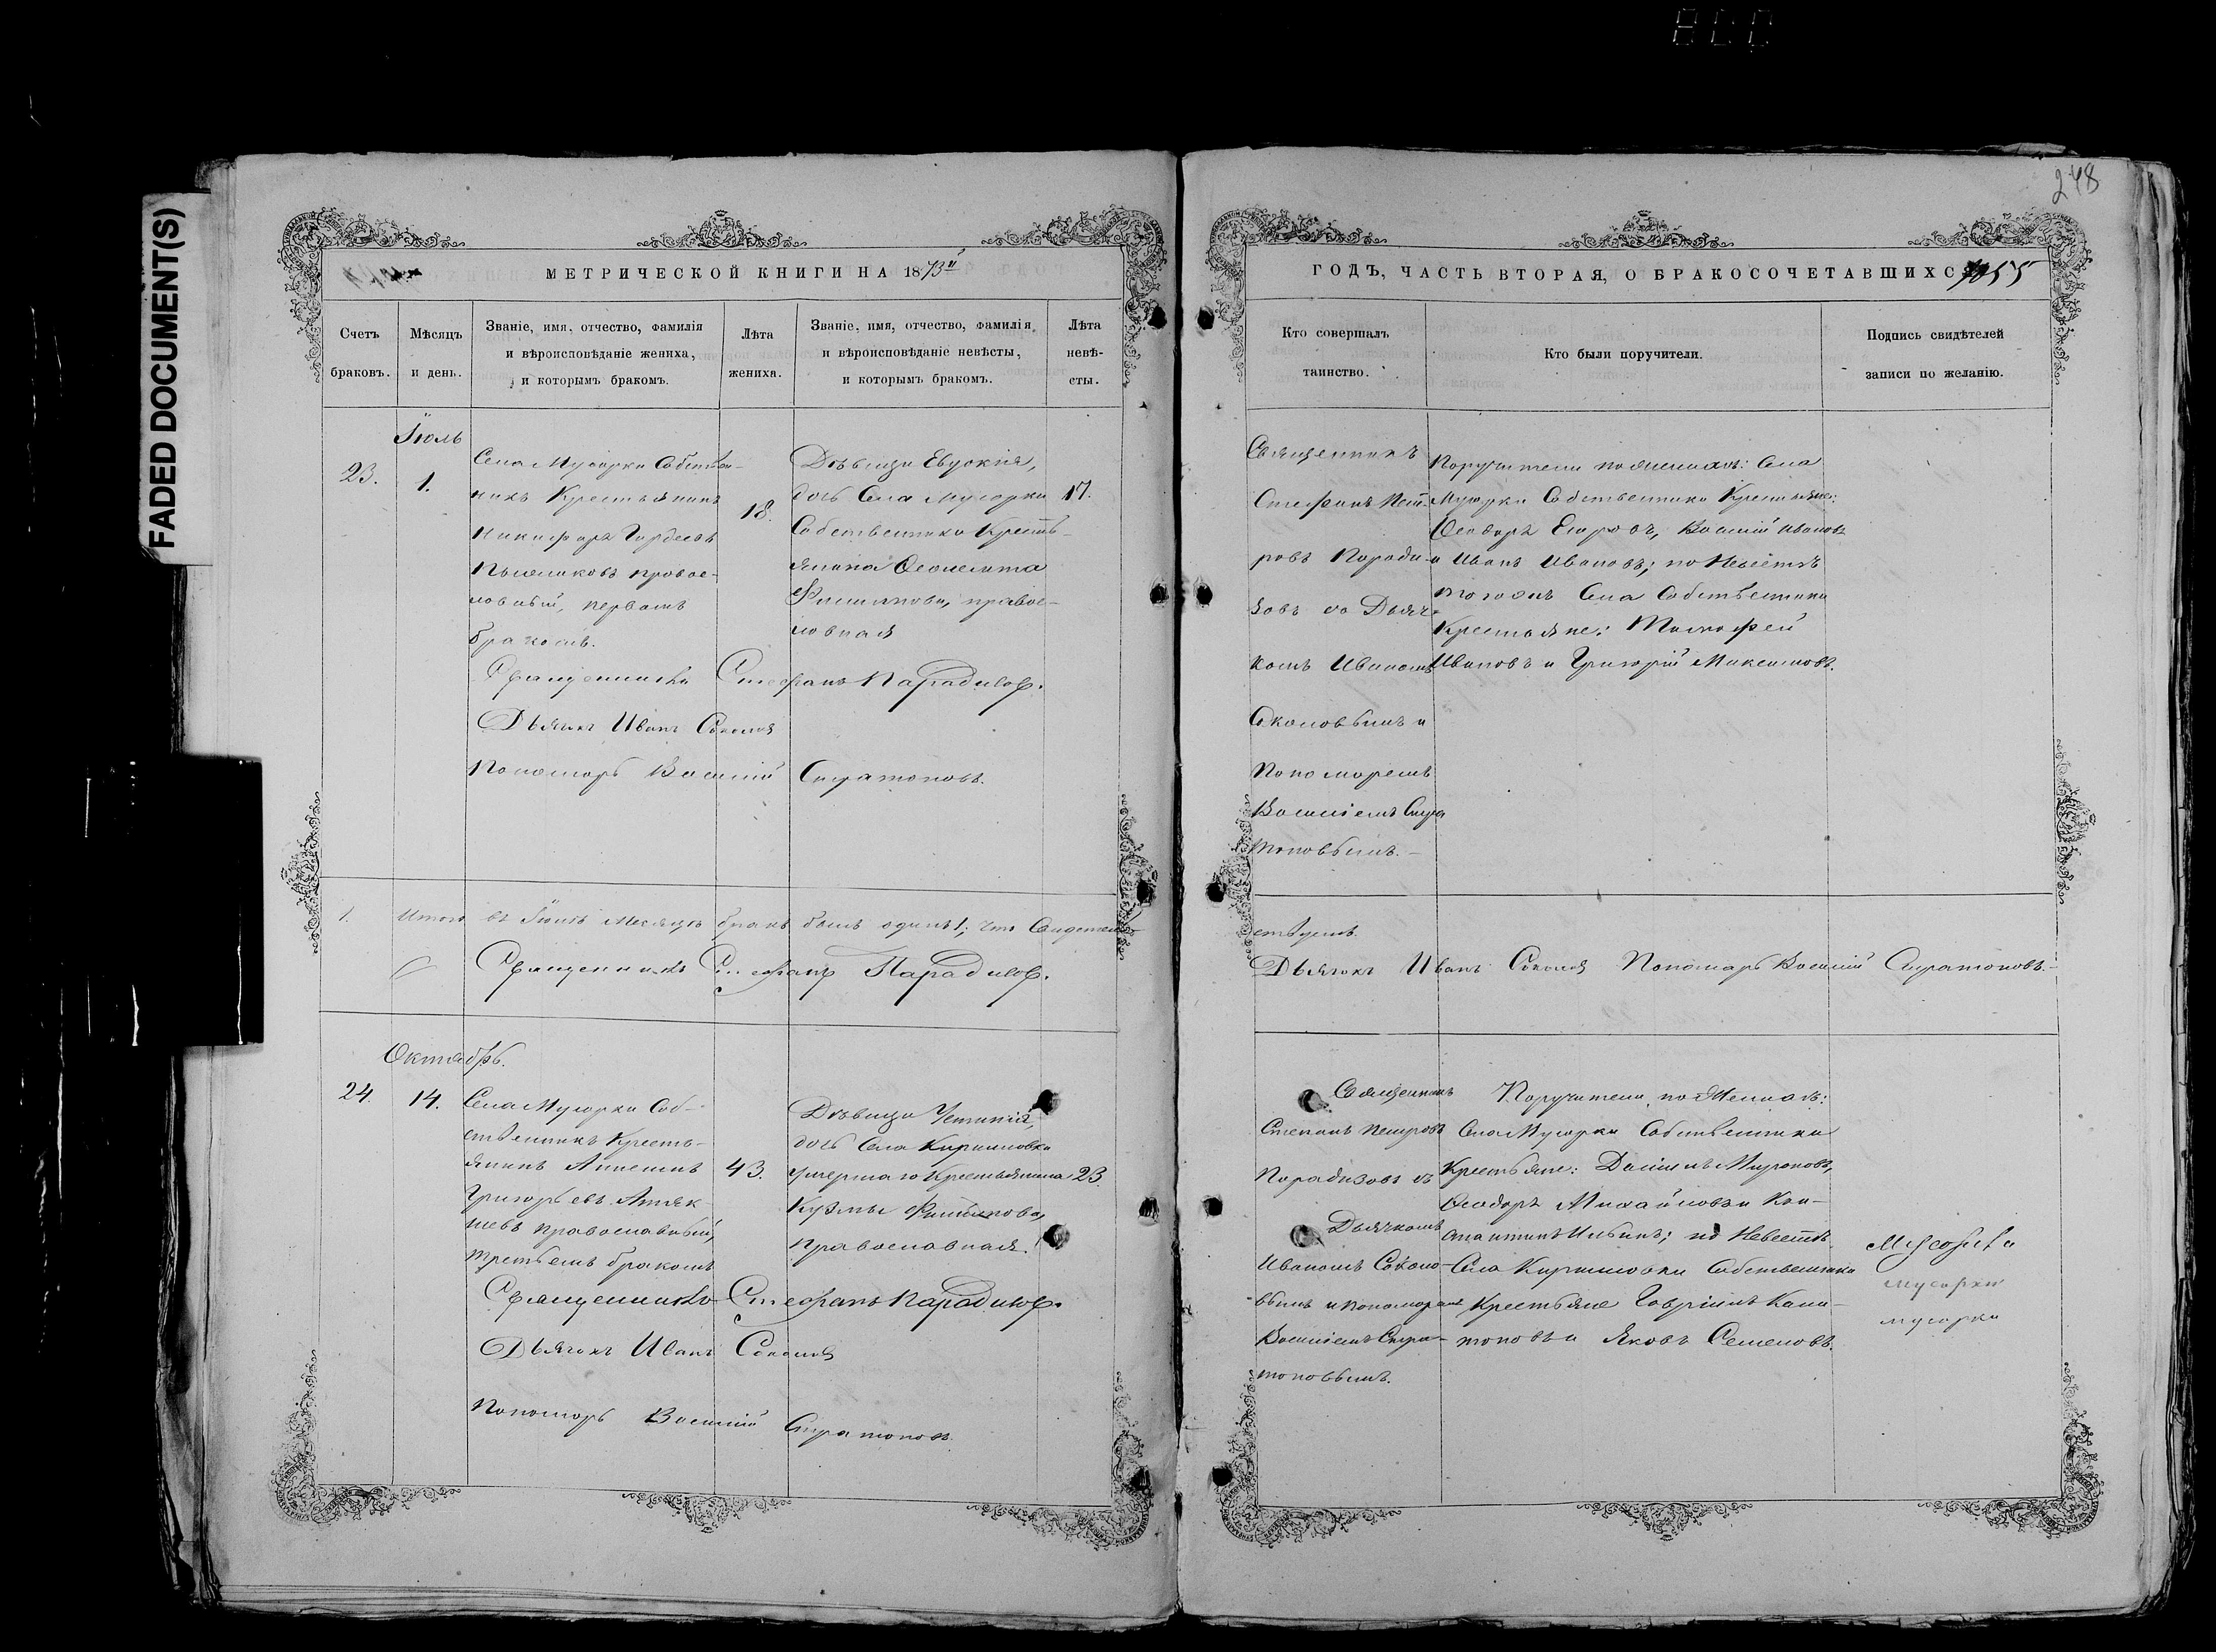 FADED DOCUMENT(S)
248
МЕТРИЧЕСКОЙ КНИГИ НА 1873й
Счетъ браковъ.
Мѣсяцъ и день.
Званіе, имя, отчество, фамилія
и вѣроисповѣданіе жениха,
и которымъ бракомъ.
Лѣта
жениха.
Званіе, имя, отчество, фамилія
и вѣроисповѣданіе невѣсты,
и которымъ бракомъ.
Лѣта
невѣ-
сты.
Іюль
23.
1.
Села Мусорки Собствен-
никъ Крестьянинъ
Никифоръ Гордеевъ
православный, первымъ
бракомъ.
18.
Дѣвица Евдокія,
дочь Села Мусорки
Собственника Кресть-
янина Филиппова, правос-
лавная
17.
Священникъ Стефанъ Парадизовъ.
Дьячокъ Иванъ Соколовъ
Пономарь Василій Стратоновъ.
1. Итого въ Месяцѣ бракъ былъ одинъ 1; что Свидетель-
Священникъ Стефанъ Парадизовъ.
Октябрь.
24.
14.
Села Мусорки Соб-
ственникъ Кресть-
янинъ
Григорьевъ
православный,
третьимъ бракомъ
43.
Дѣвица Устинія,
дочь Села Кирилловки
умершаго Крестьянина
Кузмы Филиппова,
православная.
23.
Священникъ Стефанъ Парадизовъ.
Дьячокъ Иванъ Соколовъ
Пономарь Василій Стратоновъ
ГОДЪ, ЧАСТЬ ВТОРАЯ, О БРАКОСОЧЕТАВШИХСЯ
1055
Кто совершалъ
таинство.
Кто были поручители.
Подпись свидѣтелей
записи по желанію.
Священникъ
Стефанъ Пет-
ровъ Паради-
зовъ съ Дьяч-
комъ Иваномъ
Соколовымъ и
Пономаремъ
Василіемъ Стра
тоновымъ.
Поручители по женихѣ: Села
Мусорки Собственники Крестьяне:
Ѳеодоръ Егоровъ, Василій Ивановъ
и Иванъ Ивановъ; по Невѣстѣ
тогожъ Села Собственники
Крестьяне: Тимофей
Ивановъ и Григорій Максимовъ.
ствуемъ.
Дьячокъ Иванъ Соколовъ Пономарь Василій Стратоновъ.
Священникъ
Степанъ Петровъ
Парадизовъ съ
Дьячкомъ
Иваномъ Соколо-
вымъ и пономаремъ
Василіемъ Стра-
тоновымъ.
Поручители по Женихѣ:
Села Мусорки Собственники
Крестьяне: Даніилъ Мироновъ,
Ѳеодоръ Михайловъ и Кон-
стантинъ Ильинъ; по Невестѣ
Села Кирилловки Собственники
Крестьяне Гавріилъ Хари-
тоновъ и Яковъ Семеновъ.
Мусорки
мусорки
мусорки